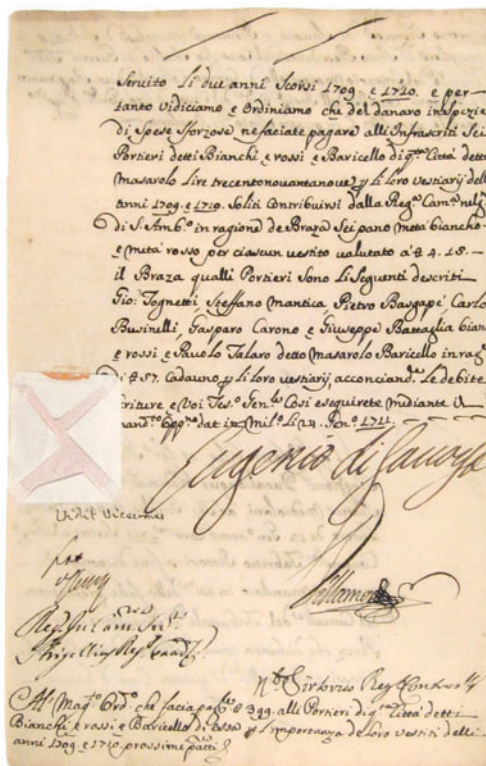 Servito Li due anni Scorsi 1709 e 1710. e per=
tanto vidiciamo e Ordiniamo che del danaro in Spezie
di Spese Sforzose ne faciate pagare alli Infrascriti Sei
Portieri detti Bianchi e rossi e Baricello di q.ta Città dett
Masarolo Lire trecentonouantanoue p Li Loro vestiarij dell
anni 1709 e 1710. Soliti Contribuirsi dalla Reg.a Cam.a nel
di S. Amb.o in ragione de Braza Sei pano metà biancho
e metà rosso per ciascun vestito valutato à £ 4. 15. —
il Braza qualli Portieri Sono Li Seguenti descriti
Gio: Tognetti, Steffano Mantica, Pietro Bargapè, Carlo
Businelli, Gasparo Carono e Giuseppe Battaglia bian
e rossi e Pauolo Talaro detto Masarolo Baricello in rag
di £ 57. Cadauno p li Loro vestiarij, acconciand. Le debite
scriture e Voi Tes.o Gen.le Così esequirete mediante il
mand.o dat in Mil.o Li 24. Gen.o 1711.
Eugenio di Sauoya
Vidit
Reg.
Sirtorus Reg.
Al Mag.to Ord.o che facia pag. £ 399. alli Portieri di q.ta Città detti
Bianchi e rossi e Baricello di essa p L'importanza de Loro vestiti delli
anni 1709 e 1710. prossime